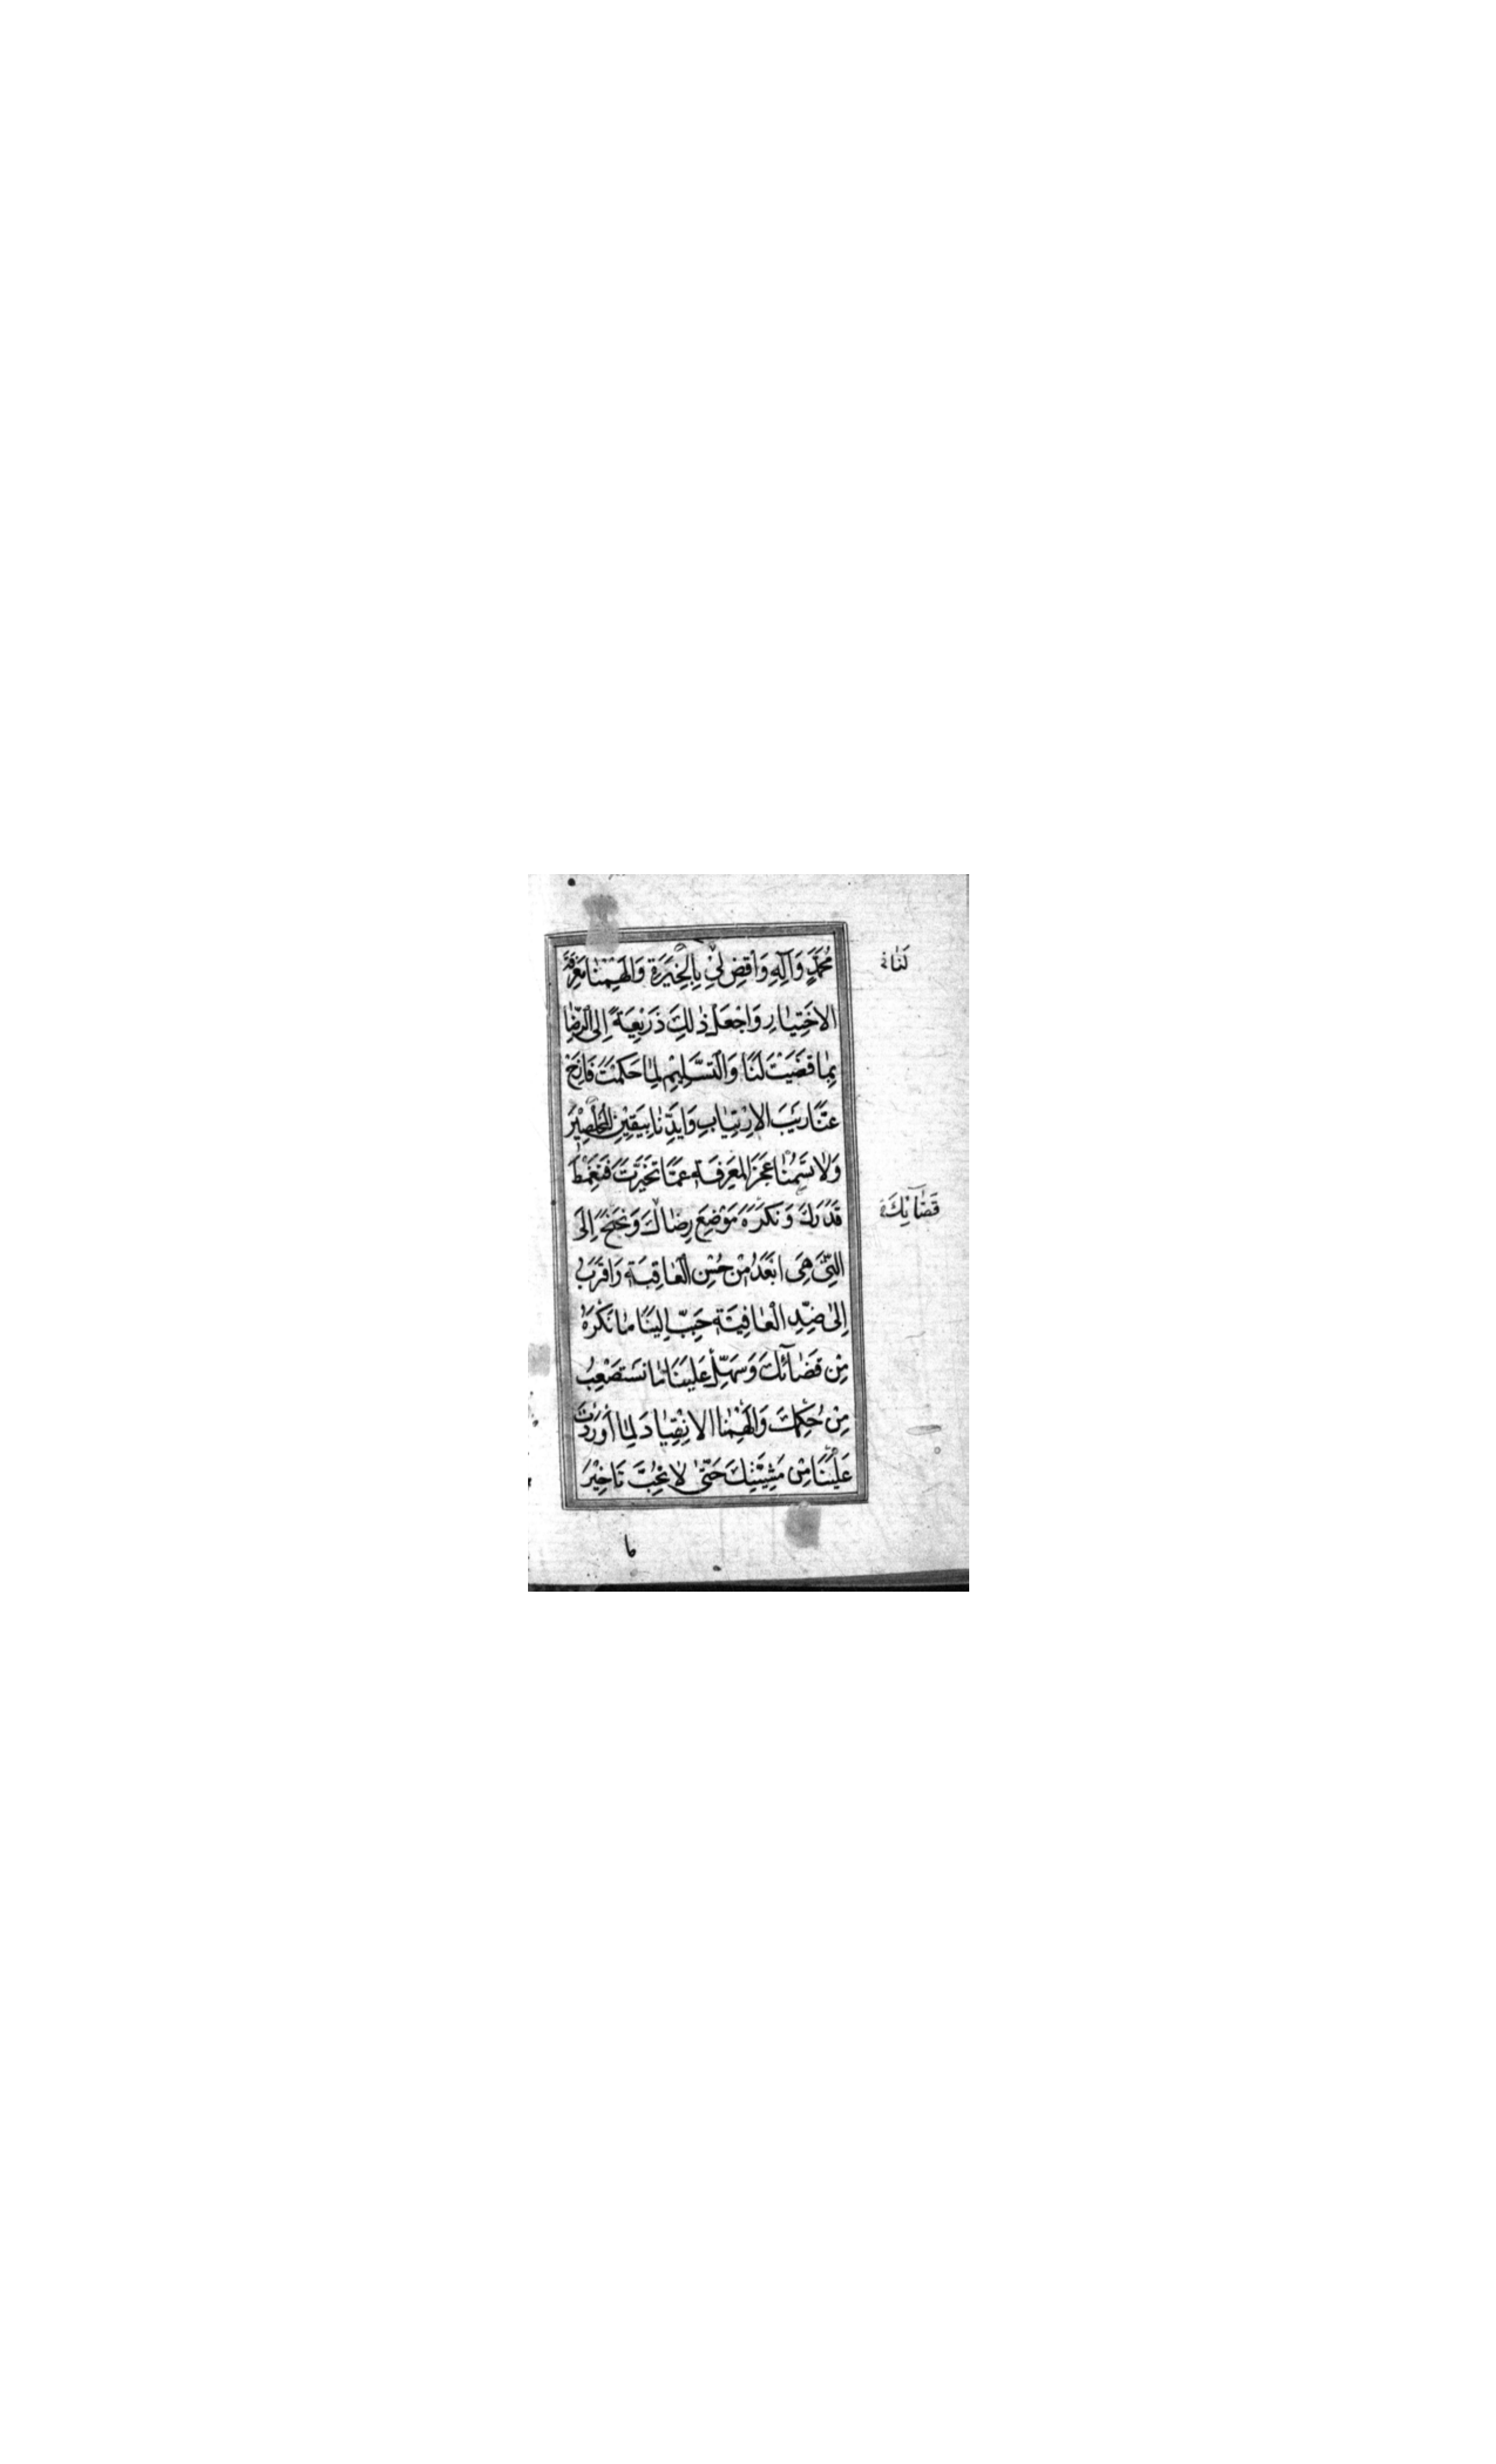 مُحَمَّدٍ وَآلِهِ وَاقْضِ لِيْ بِالْخِيَرَةِ وَالْهِمْنٰا مَعْرِفَةَ
الاخْتِيٰارِ وَاجْعَلْ ذٰلِكَ ذَرِيْعَةً اِلَى الرِّضٰا
بِمٰا قَضَيْتَ لَنٰا وَالتَّسْلِيْمِ لِمٰا حَكَمْتَ فَازِحْ
عَنّٰا رَيْبَ الارْتِيٰابِ وَايِّدْنٰا بِيَقِيْنِ الْمُخْلِصِيْنَ
وَلٰا تَسُمْنٰا عَجْزَ الْمَعْرِفَةِ عَمّٰا تَخَيَّرْتَ فَنَغْمِطَ
قَدْرَكَ وَنَكْرَهَ مَوْضِعَ رِضٰاكَ وَنَجْنَحَ اِلَى
الَّتِيْ هِيَ ابْعَدُ مِنْ حُسْنِ الْعٰاقِبَةِ وَاقْرَبُ
اِلٰى ضِدِّ الْعٰافِيَةِ حَبِّبْ اِلَيْنٰا مٰا نَكْرَهُ
مِنْ قَضٰائِكَ وَسَهِّلْ عَلَيْنٰا مٰا نَسْتَصْعِبُ
مِنْ حُكْمِكَ وَالْهِمْنٰا الانْقِيٰادَ لِمٰا أَوْرَدْتَ
عَلَيْنٰا مِنْ مَشِيَّتِكَ حَتّٰى لٰا نُحِبَّ تَاخِيْرَ
مٰا
لَنٰا
قَضٰآئِكَ